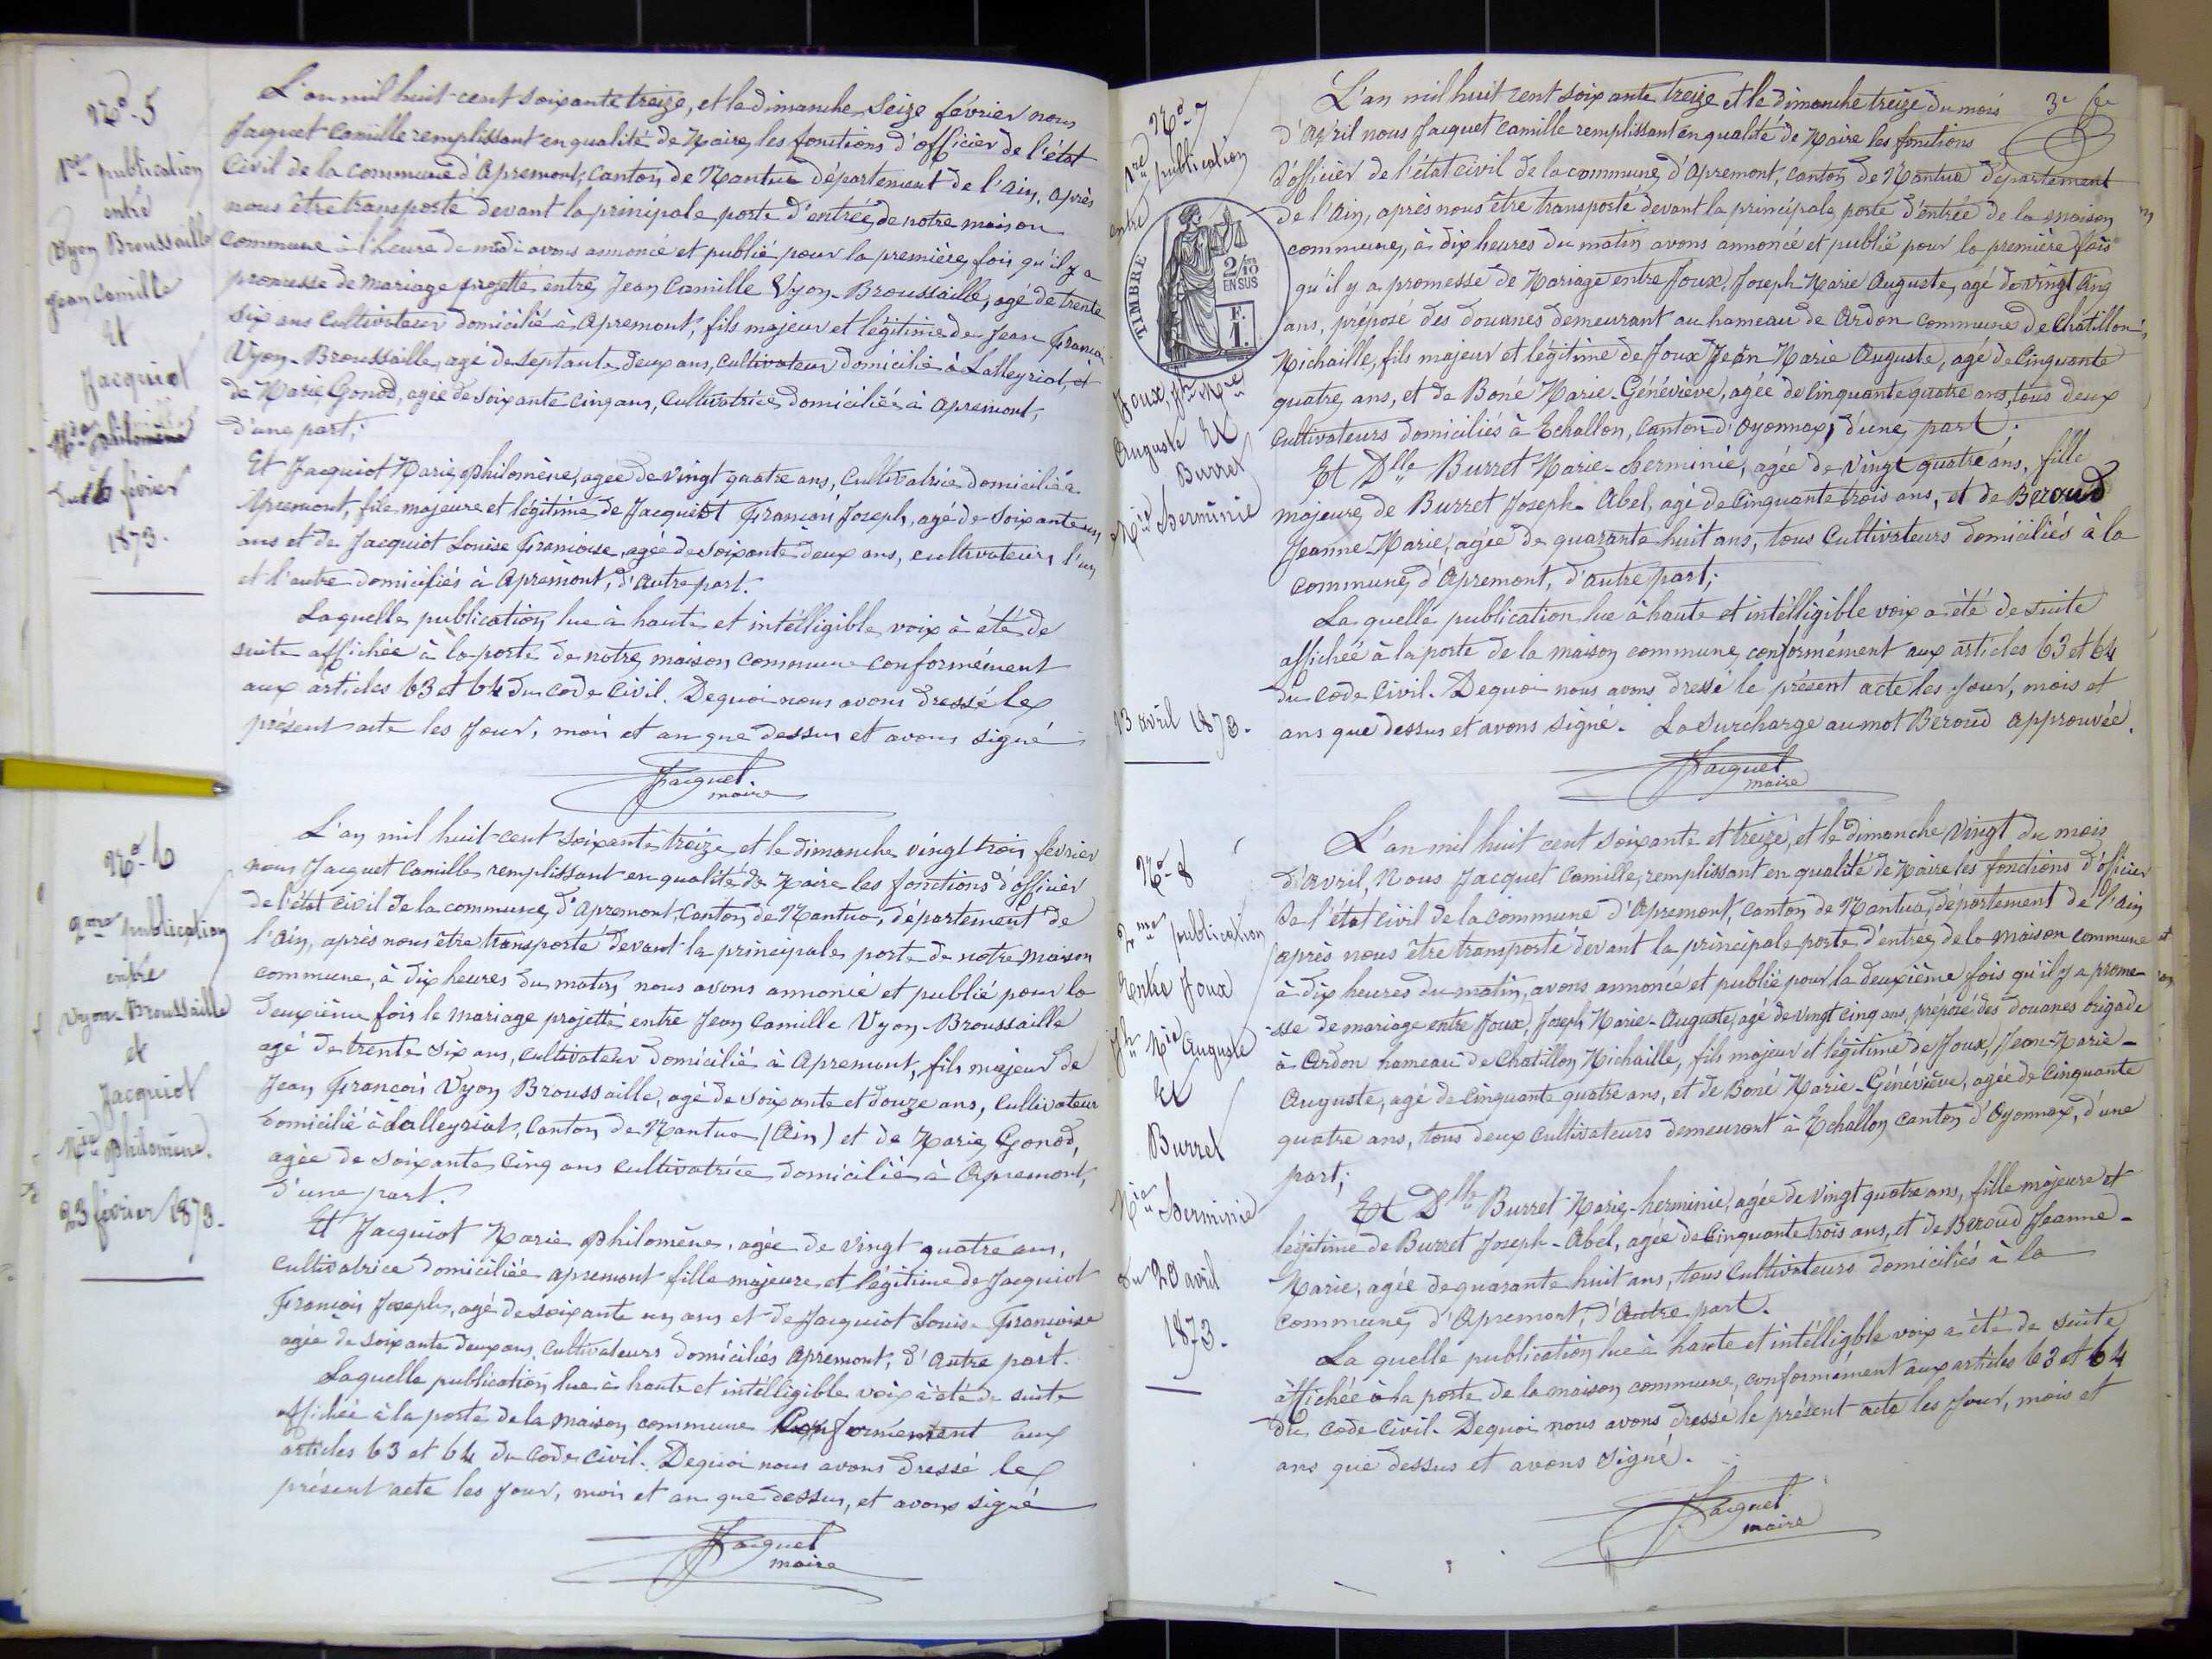 No. 5
1ère publication
entre
Vyon Broussaille
Jean Camille
Et
Jacquiot
Mie philomène
du 16 février
1873.
L'an mil huit cent soixante treize, et le dimanche seize février nous
Jacquet Camille remplissant en qualité de Maire, les fonctions d'officier de l'état
Civil de la commune d'Apremont, canton de Nantua département de l'ain, après
nous être transporté devant la principale porte d'entrée de notre maison
commune à l'heure de midi avons annoncé et publié pour la première fois qu'il y a
promesse de mariage projetté entre Jean Camille Vyon-Broussaille, agé de trente
six ans cultivateur domicilié à Apremont, fils majeur et légitime de Jean Francois
Vyon-Broussaille, agé de septante deux ans, cultivateur domicilié à Lalleyriat, et
de Marie Gonod, agée de soixante cinq ans, Cultivatrice domiciliée à apremont,
d'une part;
Et Jacquiot Marie philomène, agée de vingt quatre ans, Cultivatrice domiciliée à
Apremont, fille majeure et légitime de Jacquiot Francois Joseph, agé de soixante un
ans et de Jacquiot Louise Francoise, agée de soixante deux ans, cultivateurs, l'un
et l'autre domiciliés à Apremont, d'autre part.
Laquelle publication, lue à haute et intélligible voix à été de
suite affichée à la porte de notre maison commune conformément
aux articles 63 et 64 du code civil. Dequoi nous avons dressé le
présent acte les jour, mois et an que dessus et avons signé
Jacquet
maire
No. 6
2me publication
entre
Vyon-Broussaille
et
Jacquiot
Mie philomène.
23 février 1873.
L'an mil huit cent soixante treize et le dimanche vingt trois février
nous Jacquet Camille remplissant en qualité de Maire les fonctions d'officier
de l'état civil de la commune d'Apremont, Canton de Nantua, département de
l'ain, après nous être transporté devant la principale porte de notre maison
commune, à dix heures du matin, nous avons annoncé et publié pour la
deuxième fois le mariage projetté entre Jean Camille Vyon-Broussaille
agé de trente six ans, cultivateur domicilié à Apremont, fils majeur de
Jean Francois Vyon Broussaille, agé de soixante et douze ans, Cultivateur
domicilié à Lalleyriat, Canton de Nantua (Ain) et de Marie Gonod,
agée de soixante cinq ans cultivatrice domiciliée à Apremont,
d'une part.
Et Jacquiot Marie philomène, agée de vingt quatre ans,
Cultivatrice domiciliée apremont fille majeure et légitime de Jacquiot
Francois Joseph, agé de soixante un ans et de Jacquiot Louise Francoise
agée de soixante deux ans, Cultivateurs domiciliés Apremont, d'autre part.
Laquelle publication, lue à haute et intélligible voix à été de suite
affichée à la porte de la maison commune Conformément aux
articles 63 et 64 du code civil. Dequoi nous avons dressé le
présent acte les jour, mois et an que dessus, et avons signé
Jacquet
maire
3e fe
No. 7
1re publication
entre
TIMBRE
2/10
EN SUS
F.
1.
Joux, Jh Mie
Auguste Et
Burret
Mie Herminie
13 avril 1873.
L'an mil huit cent soixante treize et le dimanche treize du mois
d'Avril nous Jacquet Camille remplissant en qualité de Maire les fonctions
d'officier de l'état civil de la commune d'Apremont, canton de Nantua département
de l'ain, après nous être transporté devant la principale porte d'entrée de la maison
commune, à dix heures du matin avons annoncé et publié pour la première fois
qu'il y a promesse de Mariage entre Joux, Joseph Marie Auguste, agé de vingt cinq
ans, préposé des douanes demeurant au hameau de Ardon commune de Châtillon,
Michaille, fils majeur et légitime de Joux Jean Marie Auguste, agé de Cinquante
quatre ans, et de Boné Marie-Généviève, agée de cinquante quatre ans, tous deux
Cultivateurs domiciliés à Echallon, Canton d'Oyonnax, d'une part.
Et Dlle Burret Marie-Herminie, agée de vingt quatre ans, fille
majeure de Burret Joseph-Abel, agé de Cinquante trois ans, et de Beroud
Jeanne-Marie, agée de quarante huit ans, tous Cultivateurs domiciliés à la
commune d'Apremont, d'autre part;
La quelle publication lue à haute et intélligible voix a été de suite
affichée à la porte de la maison commune, conformément aux articles 63 et 64
du code Civil. Dequoi nous avons dressé le présent acte les jour, mois et
ans que dessus et avons signé. La surcharge au mot Beroud approuvée.
Jacquet
maire
No. 8
2me publication
Entre Joux
Jh Mie Auguste
Et
Burret
Mie Herminie
du 20 avril
1873.
L'an mil huit cent soixante et treize, et le dimanche vingt du mois
d'avril, Nous Jacquet Camille, remplissant en qualité de Maire les fonctions d'officier
de l'état civil de la commune d'Apremont, canton de Nantua, département de l'ain
après nous être transporté devant la principale porte d'entrée de la maison commune
à dix heures du matin, avons annoncé et publié pour la deuxième fois qu'il y a prome-
-sse de mariage entre Joux, Joseph Marie-Auguste, agé de vingt cinq ans, préposé des douanes brigade
à Ardon hameau de Chatillon Michaille, fils majeur et légitime de Joux, Jean-Marie-
Auguste, agé de Cinquante quatre ans, et de Boné Marie-Généviève, agée de Cinquante
quatre ans, tous deux cultivateurs demeurant à Echallon canton d'Oyonnax, d'une
part;
Et Dlle Burret Marie-herminie, agée de vingt quatre ans, fille majeure et
légitime de Burret Joseph-Abel, agée de Cinquante trois ans, et de Beroud Jeanne-
Marie, agée de quarante huit ans, tous Cultivateurs domiciliés à la
commune d'Apremont, d'Autre part.
La quelle publication, lue à haute et intélligble voix a été de suite
affichée à la porte de la maison commune, conformément aux articles 63 et 64
du code Civil. Dequoi nous avons dressé le présent acte les jour, mois et
ans que dessus et avons signé.
Jacquet
maire